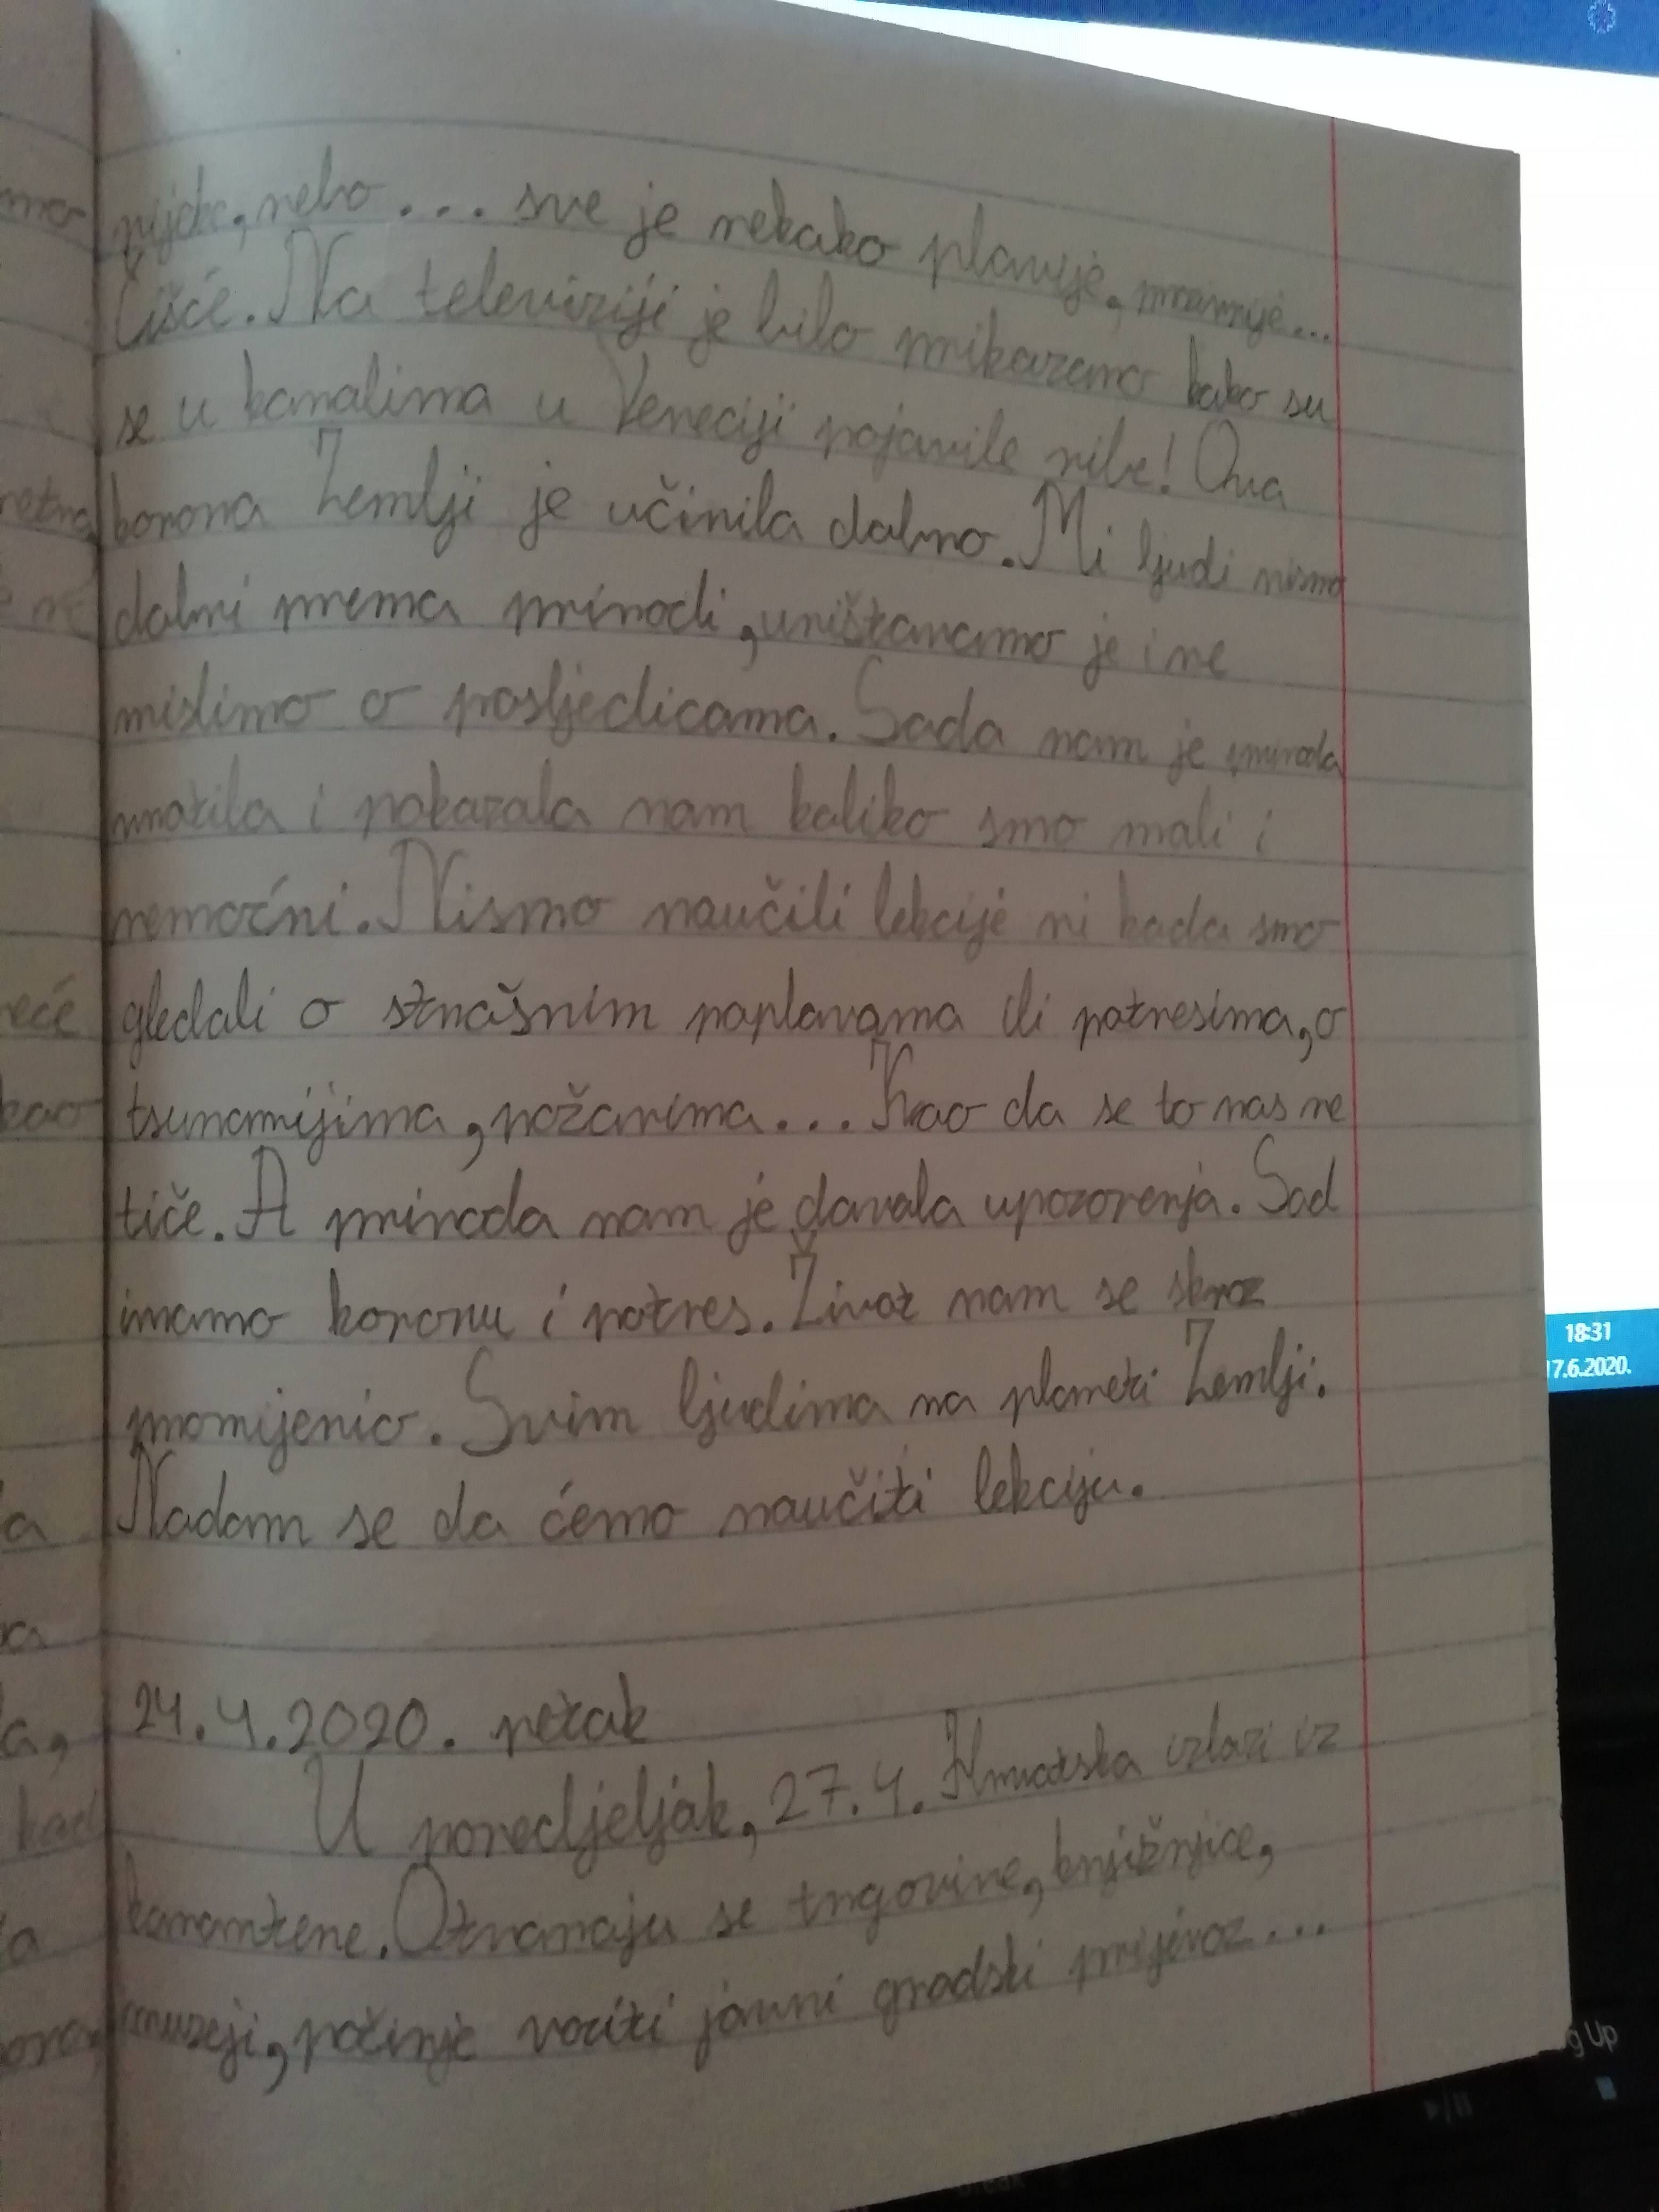 rijeke, nebo... sve je nekako plavije,
čišće. Na televiziji je bilo prikazano kako su
se u kanalima u Veneciji pojavile ribe! Ova
korona Zemlji je učinila dobro. Mi ljudi nismo
dobri prema prirodi, uništavamo je i ne
mislimo o posljedicama. Sada nam je priroda
vratila i pokazala nam koliko smo mali i
nemoćni. Nismo naučili lekcije ni kada smo
gledali o strašnim poplavama ili potresima, o
tsunamijima, požarima... Kao da se to nas ne
tiče. A priroda nam je davala upozorenja. Sad
imamo koronu i potres. Život nam se skroz
promijenio. Svim ljudima na planeti Zemlji.
Nadam se da ćemo naučiti lekciju.
24.4.2020. petak
U ponedjeljak, 27.4. Hrvatska izlazi iz
karantene. Otvaraju se trgovine, knjižnjice,
muzeji, počinje voziti javni gradski prijevoz...
reće
kao
a
kad
18:31
17.6.2020.
g Up